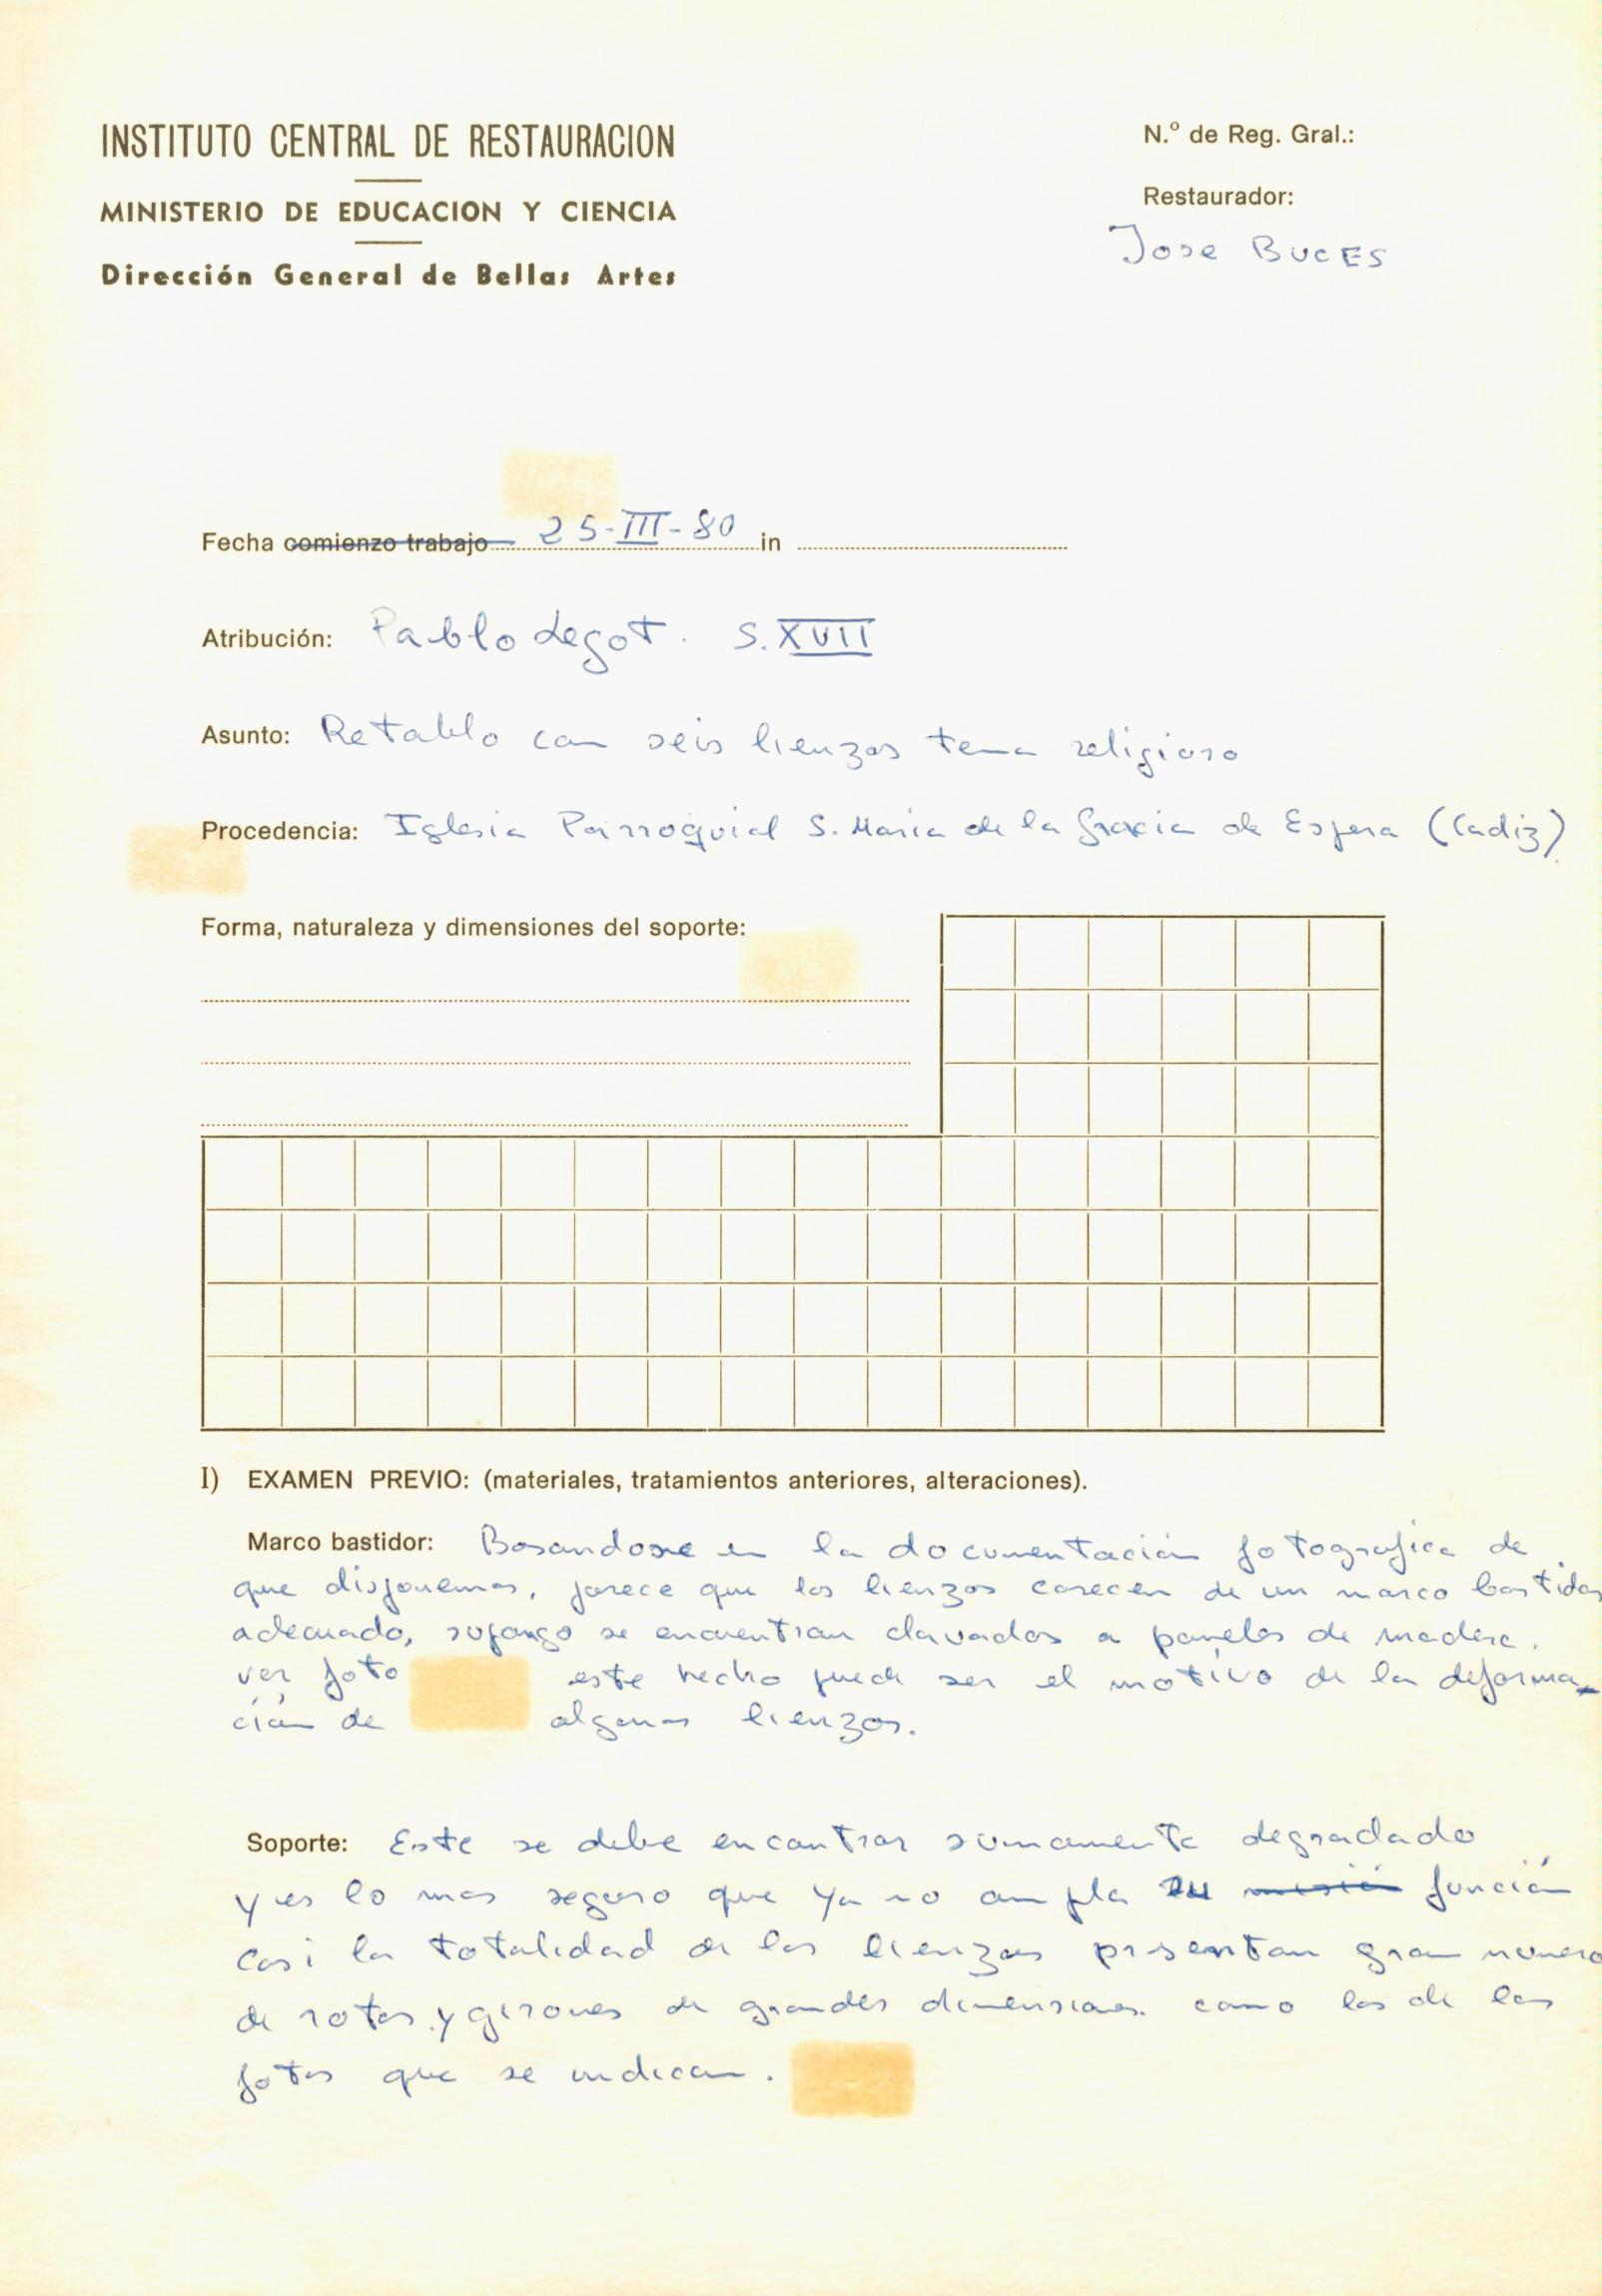 INSTITUTO CENTRAL DE RESTAURACION
MINISTERIO DE EDUCACION Y CIENCIA
Dirección General de Bellas Artes
N.º de Reg. Gral.:
Restaurador:
Jose BUCES
Fecha comienzo trabajo 25-III-80 in
Atribución: Pablo Legot. S. XVII
Asunto: Retablo con seis lienzos tema religioso
Procedencia: Iglesia Parroquial S. Maria de la Gracia de Espera (Cadiz)
Forma, naturaleza y dimensiones del soporte:
I) EXAMEN PREVIO: (materiales, tratamientos anteriores, alteraciones).
Marco bastidor: Basandose en la documentación fotografica de
que disponemos, parece que los lienzos carecen de un marco bastidor
adecuado, supongo se encuentran clavados a paneles de madera.
ver foto este hecho puede ser el motivo de la deforma-
ción de algunos lienzos.
Soporte: Este se debe encontrar sumamente degradado
y es lo mas seguro que ya no cumpla su misión función
Casi la totalidad de los lienzos presentan gran numero
de rotos y girones de grandes dimensiones. como los de las
fotos que se indican.